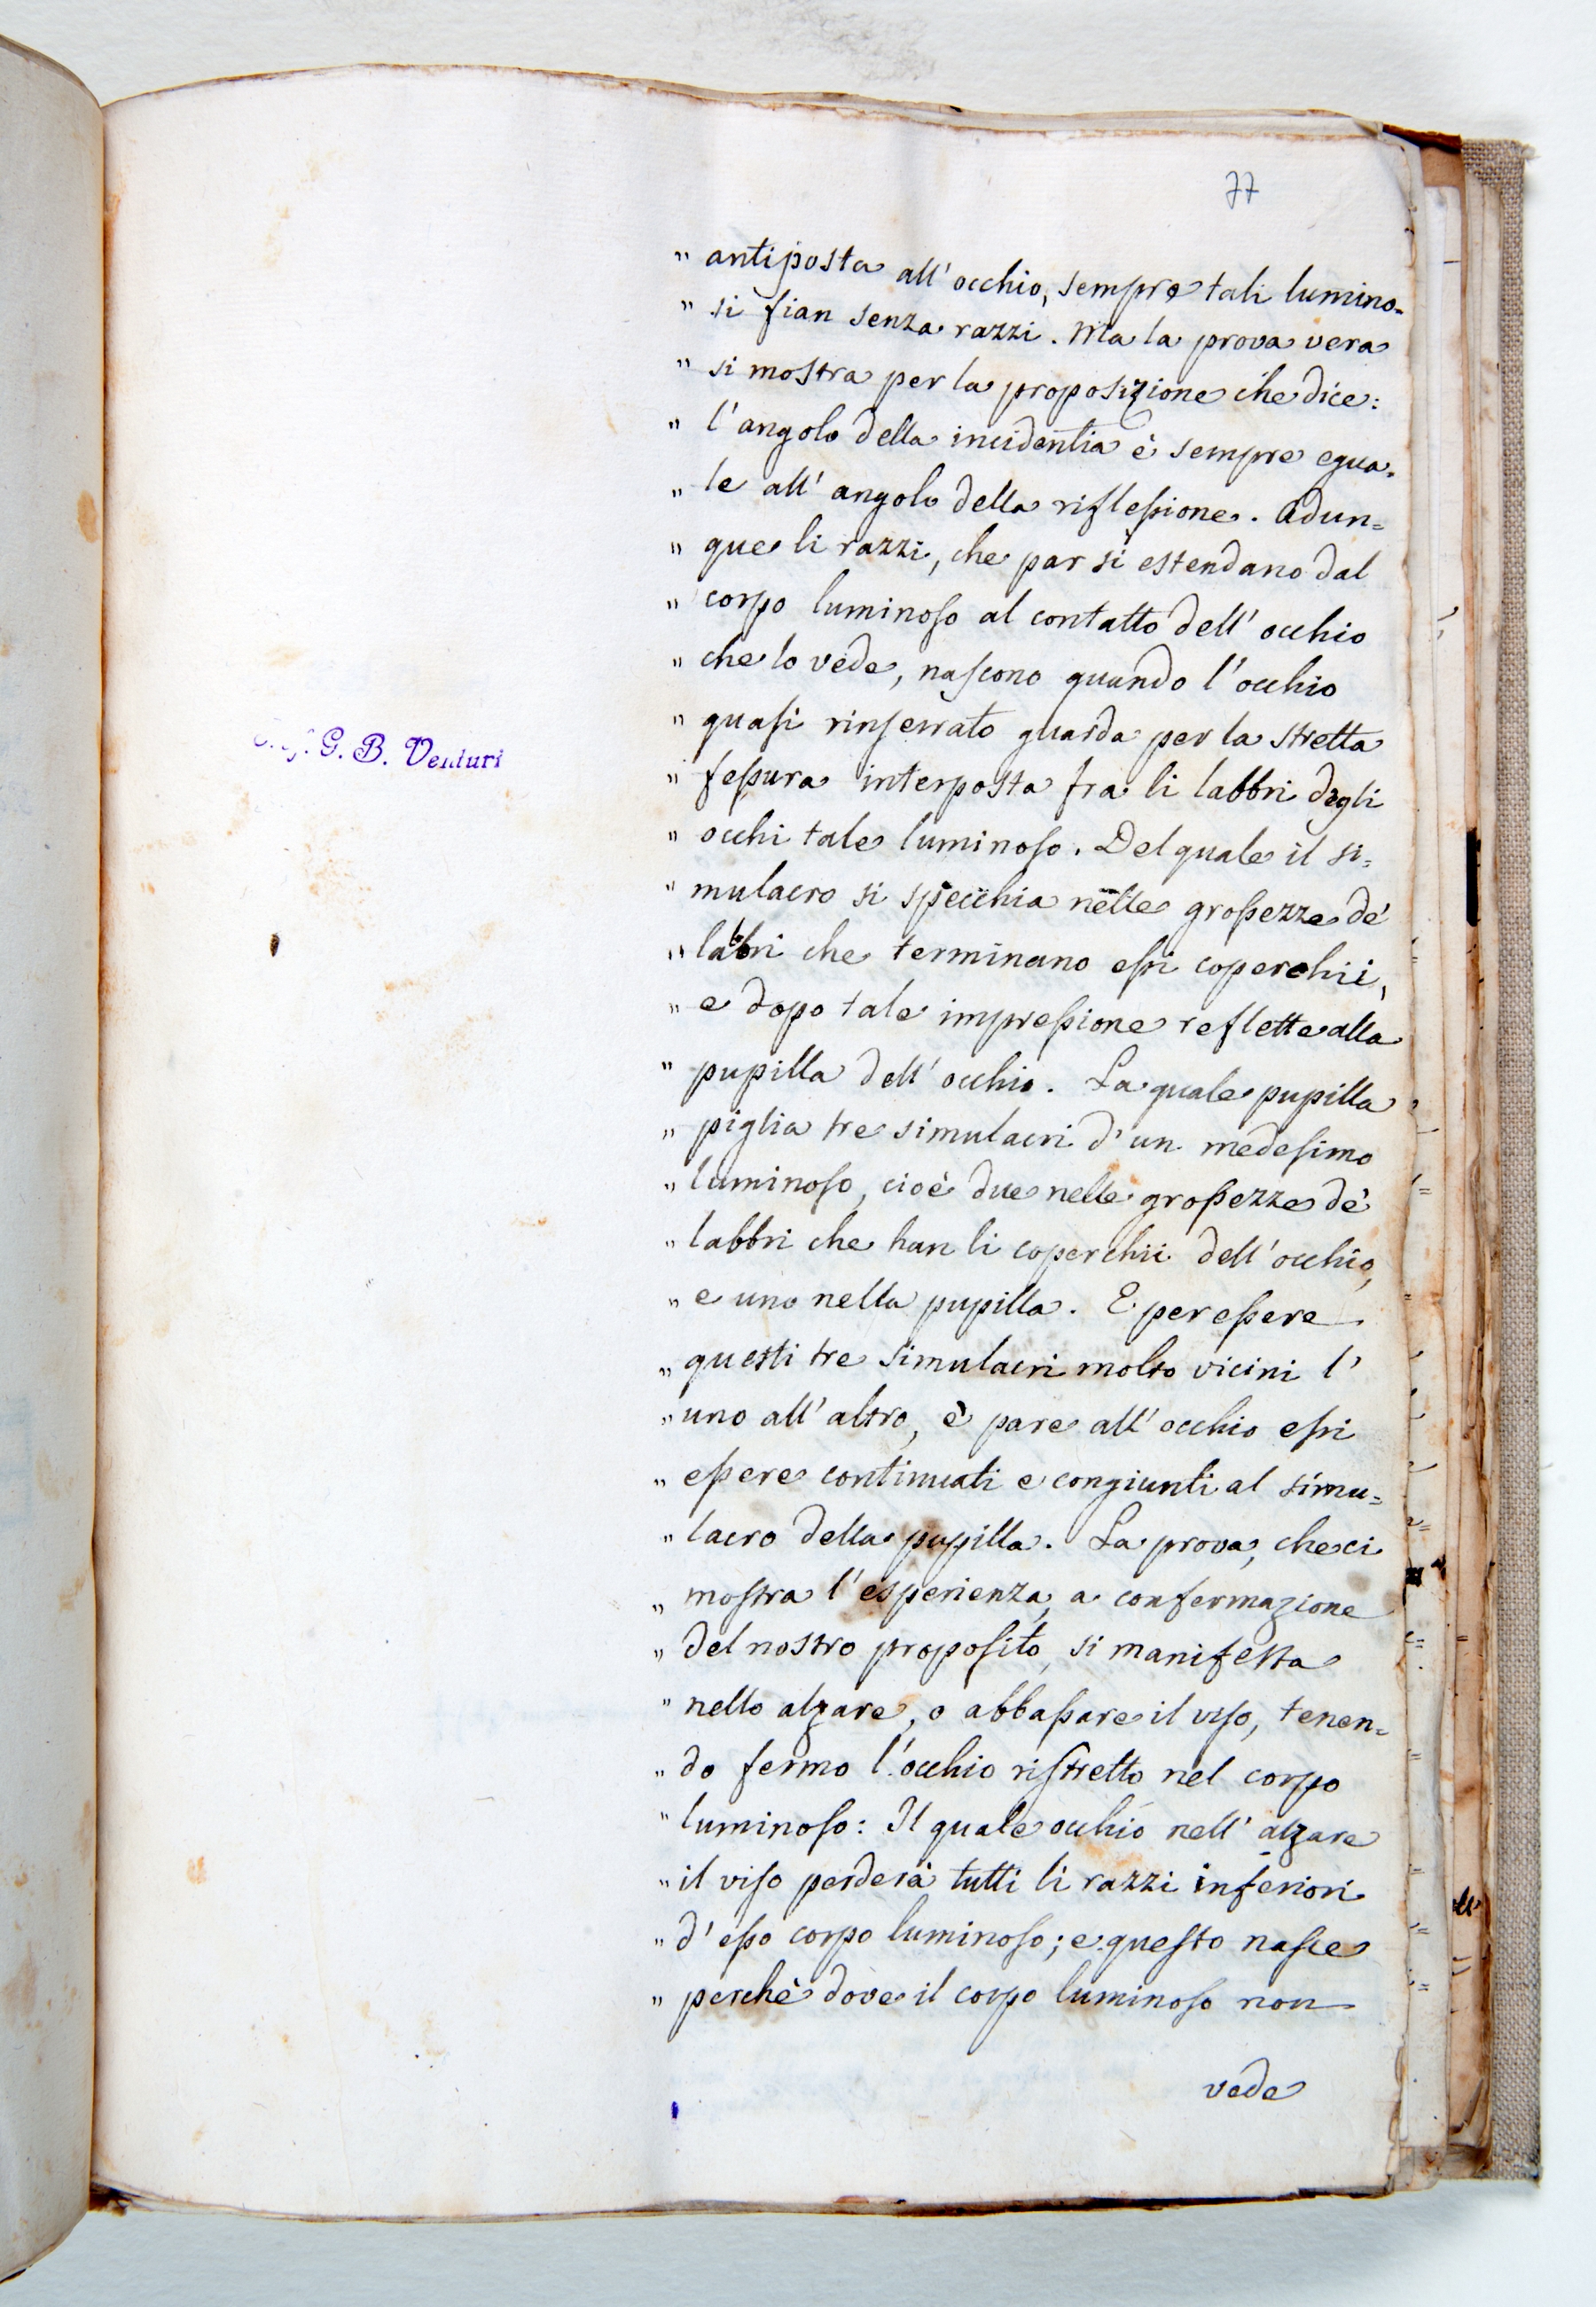 77
„ antiposta all' occhio, sempre tali lumino=
„ si fian senza razzi. Ma la prova vera
„ si mostra per la proposizione che dice:
„ l'angolo della incidentia è sempre egua=
„ le all' angolo della riflessione. Adun=
„ que li razzi, che par si estendano dal
„ corpo luminoso al contatto dell' occhio
„ che lo vede, nascono quando l'occhio
„ quasi rinserrato guarda per la stretta
„ fessura interposta fra li labbri degli
„ occhi tale luminoso. Del quale il si=
„ mulacro si specchia nelle grossezze de'
„ labbri che terminano essi coperchii,
„ e dopo tale impressione reflette alla
„ pupilla dell' occhio. La quale pupilla
„ piglia tre simulacri d' un medesimo
„ luminoso, cioè due nelle grossezze de'
„ labbri che han li coperchii dell' occhio,
„ e uno nella pupilla. E per essere
„ questi tre simulacri molto vicini l'
„ uno all' altro, è pare all' occhio essi
„ essere continuati e congiunti al simu=
„ lacro della pupilla. La prova, che ci
„ mostra l'esperienza, a confermazione
„ del nostro proposito, si manifesta
„ nello alzare, o abbassare il viso, tenen=
„ do fermo l'occhio ristretto nel corpo
„ luminoso: Il quale occhio nell' alzare
„ il viso perderà tutti li razzi inferiori
„ d' esso corpo luminoso; e questo nasce
„ perchè dove il corpo luminoso non
vede
G. B. Venturi